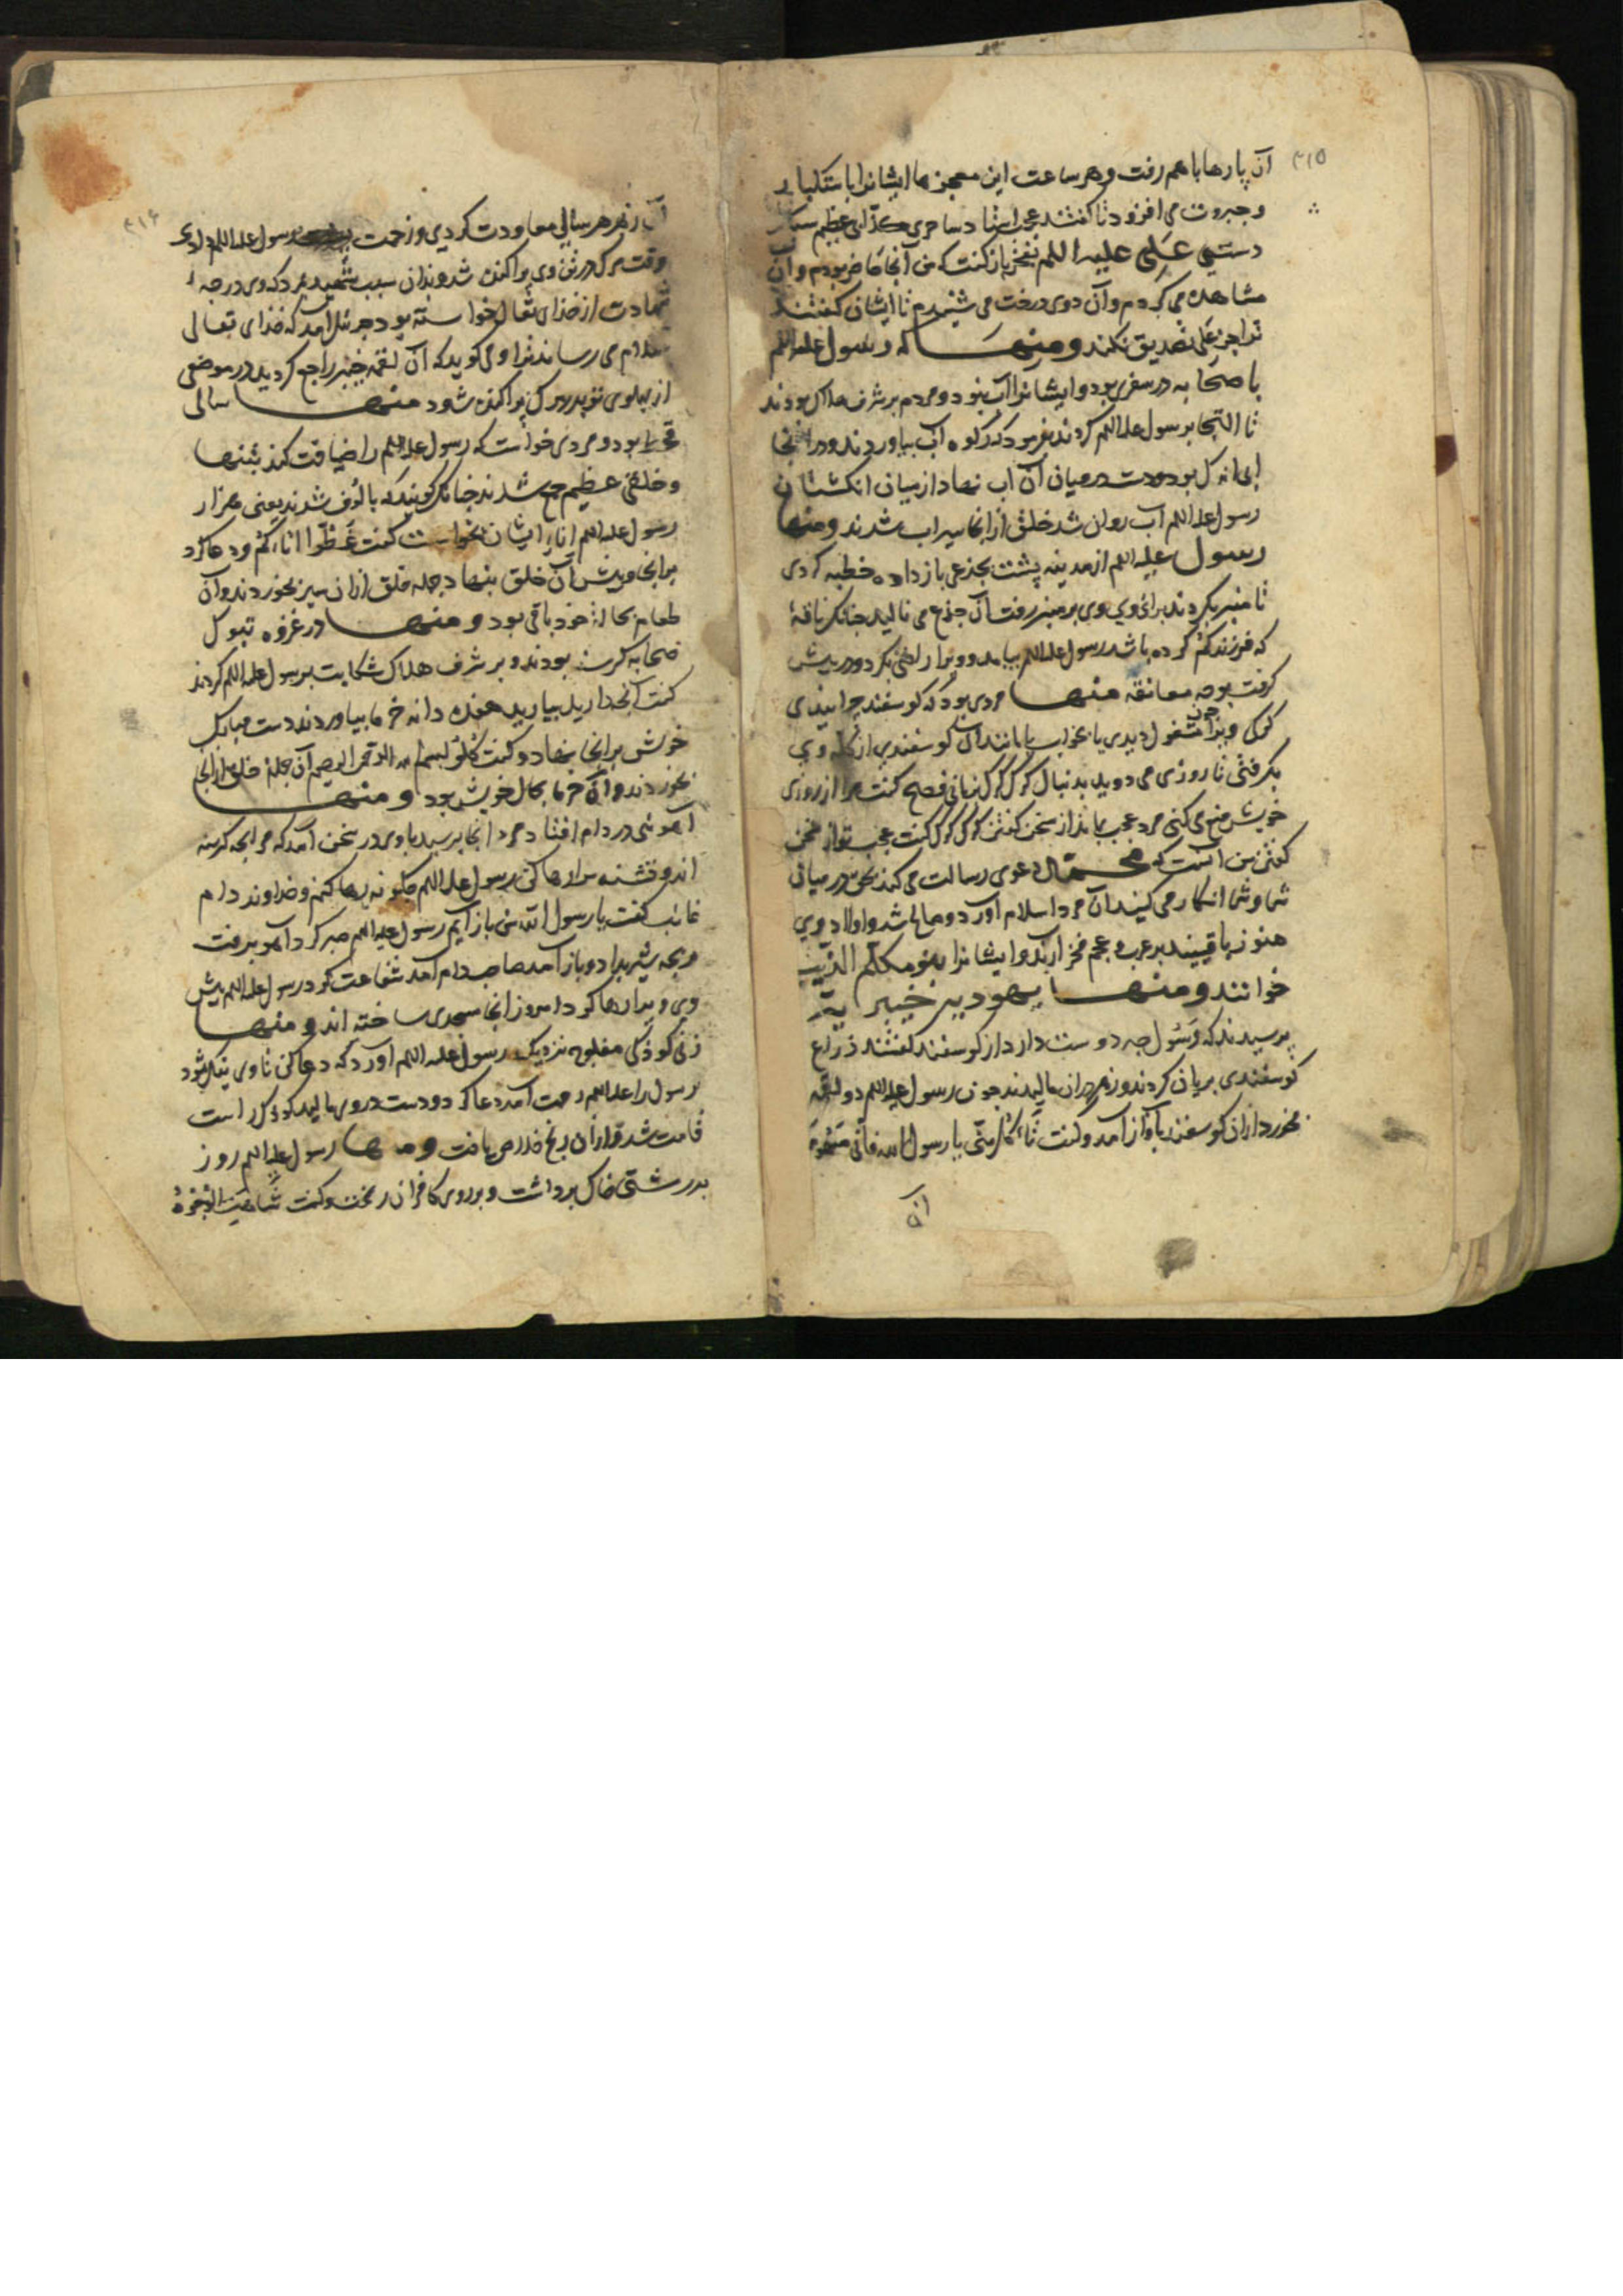 ٣١٥
آن پارها باهم رفت و هر ساعت این معجزها ایشانرا باستکبار
و جبروت می‌افزود تا گفتند عجب استاد ساحری کذابی عظیم سبک
دستی علی علیه السلم بفخر باز گفت که من آنجا حاضر بودم و آن
مشاهده می‌کردم و آن دوی درخت می‌شنیدم تا ایشان گفتند
ترا جز علی تصدیق نکند ومنها که رسول علیه السلم
با صحابه در سفری بود و ایشانرا آب نبود و مردم بر شرف هلاک بودند
تا التجا برسول علیه السلم کردند بفرمود که رکوه آب بیاوردند و در آنجا
بود دست در میان آن آب نهاد از میان انکشتان
رسول علیه السلم آب روان شد خلق از آنجا سیراب شدند ومنها
رسول علیه السلم از مدینه پشت بجذعی باز داده خطبه کردی
تا منبر بکردند برای وی وی بر منبر رفت آن جذع می‌نالید جنانک ناقۀ
که فرزند کم کرده باشد رسول علیه السلم بیامد و ویرا راضی بکرد و در پیش
کرفت بوجه معانقه منها مردی بود که کوسفند چرانیدی
کرکی ویرا چون مشغول دیدی یا بخواب یا مانند آن کوسفندی از کله وی
بکرفتی تا روزی می‌دوید بدنبال کرک کرک بزبانی فصیح کفت مرا از روزی
خویش منع می‌کنی مرد عجب بماند از سخن کفتن کرک کرک کفت عجب تر از سخن
کفتن من آنست که محمد دعوی رسالت می‌کند بحق در میان
شما و شما انکار می‌کنید آن مرد اسلام آورد و صالح شد و اولاد وی
هنوز باقیند بر عرب و عجم فخر آرند و ایشانرا بنو مکلم الذیب
خوانند ومنها یهود خیبر
پرسیدند که رسول جه دوست دارد از کوسفند کفتند ذراع
کوسفندی بریان کردند و زهر در آن مالیدند جون رسول علیه السلم دو لقمه
بخورد از آن کوسفند بآواز آمد و کفت لا تأکل منی یا رسول الله فانی مسموم
آن
٣١٤
آن زهر هر سالی معاودت کردی و زحمت رسول علیه السلم دادی
وقت مرک در تن وی پراکنده شد و بدان سبب شهید مرد که وی درجۀ
شهادت از خدای تعالی خواسته بود جبرئیل آمد که خدای تعالی
سلام می‌رساند ترا و می‌کوید که آن لقمه خیبر راجع کردید در موضعی
از پهلوی تو بدر مرک پراکنده شود منها سالی
قحط بود و مردی خواست که رسول علیه السلم را ضیافت کند بتنها
و خلقی عظیم جمع شدند جنانک کویند که بالوف شدند یعنی هزار
رسول علیه السلم اناء ایشان بخواست کفت غطوا اناءکم و دعا کرد
برآنجا و پیش آن خلق بنهاد جمله خلق از آن سیر بخوردند و آن
طعام بحال خود باقی بود ومنها در غزوه تبوک
صحابه کرسنه بودند و بر شرف هلاک شکایت برسول علیه السلم کردند
کفت آنجه دارید بیارید هفده دانه خرما بیاوردند دست مبارک
خویش بر آنجا نهاد و کفت کلو بسم الله الرحمن الرحیم آن جمله خلق از آنجا
بخوردند و آن خرما بحال خویش بود و منها
آهوئی در دام افتاد مرد آنجا برسید باوی در سخن آمد که مرا بجه کرسنه
اند و تشنه مرا رها کن رسول علیه السلم چکونه رها کنم و خداوند دام
غایب کفت یا رسول الله من باز آیم رسول علیه السلم صبر کرد آهو برفت
و بجه شیر بداد و باز آمد صاحب دام آمد شفاعت کرد رسول علیه السلم پیش
وی ویرا رها کرد امروز آنجا مسجدی ساخته اند ومنها
زنی کوذکی مفلوج نزدیک رسول علیه السلم آورد که دعا کن تا وی نیک شود
رسول را علیه السلم رحمت آمد دعا کرد و دست در وی مالید کودک راست
قامت شد و از آن رنج خلاص یافت ومنها رسول علیه السلم روز
بدر مشتی خاک برداشت و بر روی کافران ریخت و کفت شاهت الوجوه